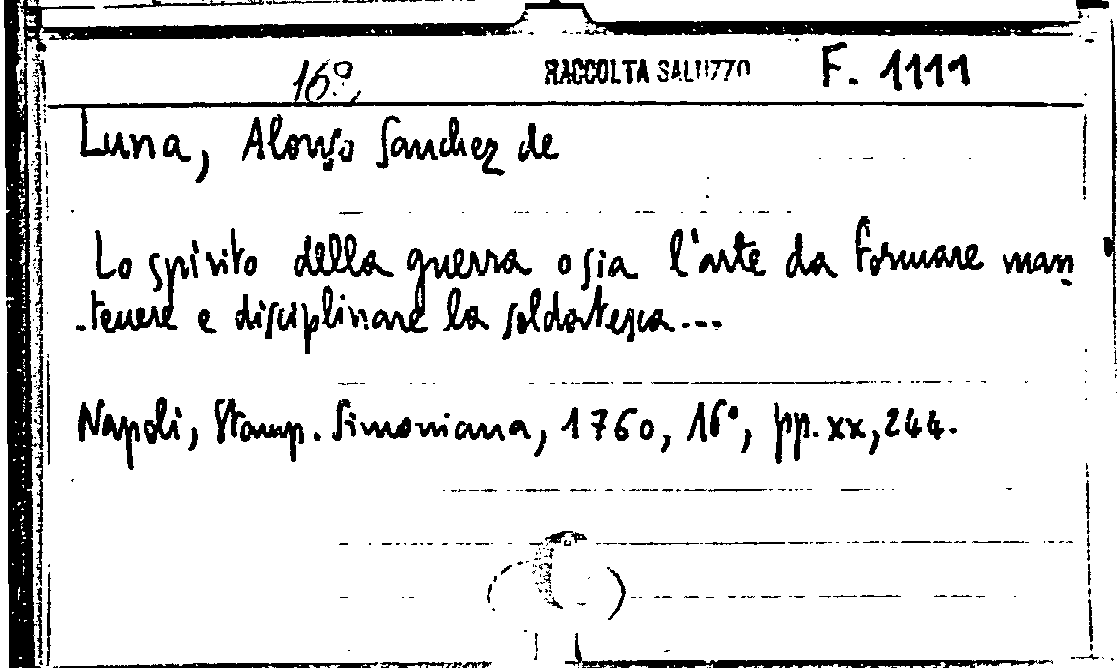 16º RACCOLTA SALUZZO F. 1111
Luna, Alonso Sanchez de
Lo spirito della guerra osia l'arte da formare man
tenere e disciplinare la soldatesca...
Napoli, Stamp. Simoniana, 1760, 16°, pp. xx, 244.